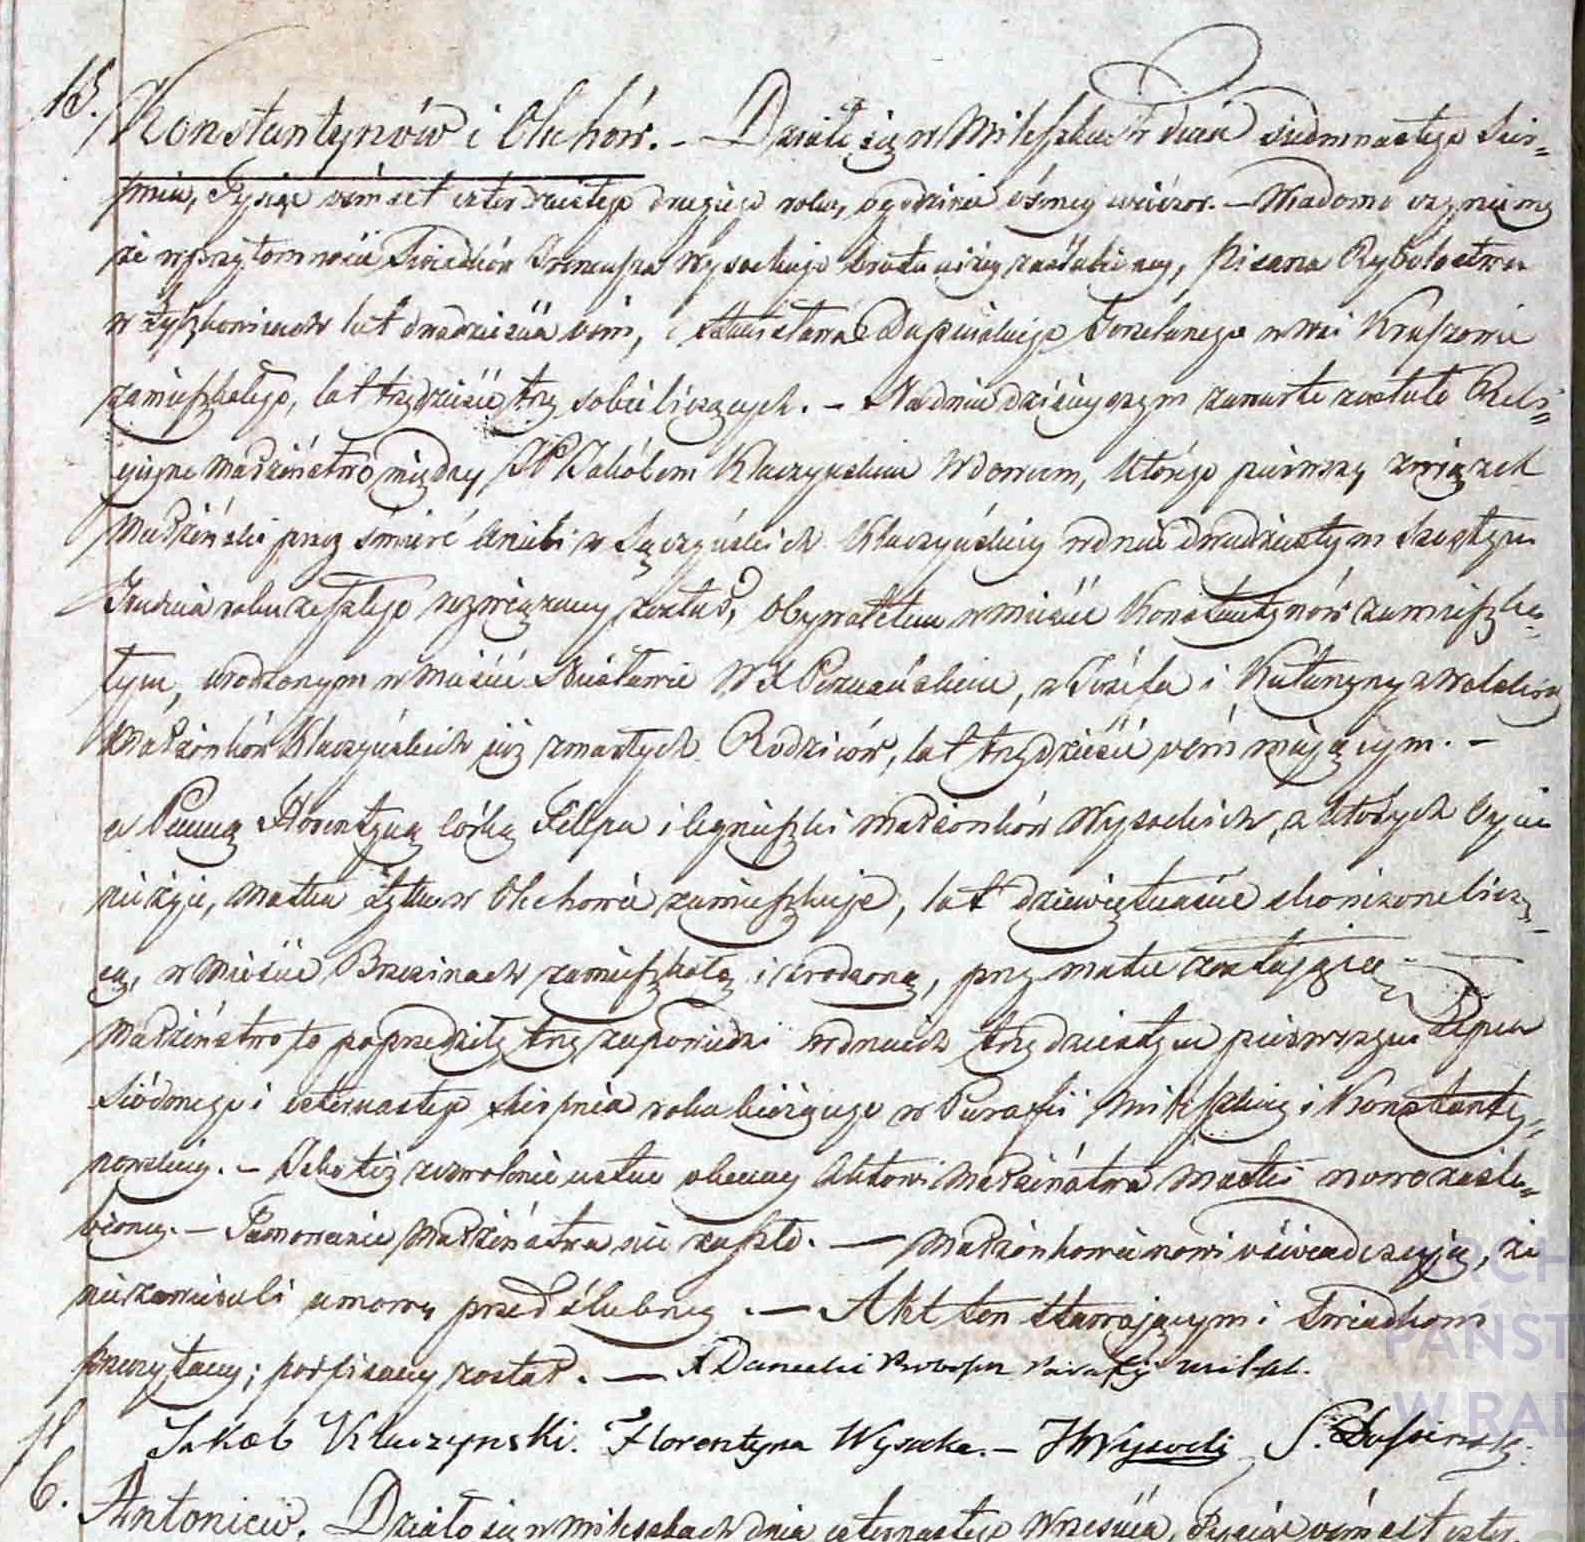 15. Konstantynów i Olchów. – Działo się w Mileszkach dnia siedmnastego Sier=
pnia, Tysiąc ośmset czterdziestego drugiego roku, o godzinie ósmey wieczor. – Wiadomo czyniemy
że w przytomności Świadków Ireneusza Wysockiego brata niżey zaślubioney, Pisarza
w lat dwadzieścia ośm, i Stanisława Dupinskiego we wsi Kraszowie
zamieszkałego, lat trzydzieści trzy sobie liczących. – Na dniu dzisieyszym zawarte zostało Reli=
gijne Małżeństwo między JP Jakóbem Kluczynskim Wdowcem, którego pierwszy związek
Małżeński przez śmierć Anieli z Kluczyńskiey w dniu dwudziestym szóstym
Grudnia roku zeszłego rozwiązany został, Obywatelem w mieście Konstantynów zamieszka=
łym, urodzonym w mieście W X Poznańskim, z Józefa i Katarzyny z
Małżonków Kluczyńskich już zmarłych Rodziców, lat trzydzieści ośm mającym. –
a Panną Florentyną córką Filipa i Agnieszki małżonków Wysockich, z których Oyciec
nie żyie, Matka w Olchowie zamieszkuje, lat dziewiętnaście skończone liczą=
cą, w mieście Brzezinach zamieszkałą i urodzoną, przy matce zostającą –
Małżeństwo to poprzedziły trzy zapowiedzi w dniach trzydziestym pierwszym Lipca
Siódmego i czternastego Sierpnia roku bieżącego w Parafii Mileszkiey i Konstanty=
nowskiey. – Jako też zezwolenie ustne obecney Aktowi Małżeństwa Matki nowozaślu=
bioney. – Tamowanie Małżeństwa nie zaszło. — Małżonkowie nowi oświadczają, że
nie zawierali umowy przedślubney. — Akt ten stawającym i Świadkom
przeczytany; podpisany został. — X Danecki Proboszcz Parafij Milesz.
Jakób Kluczynski. Florentyna Wysocka. – Wysocki S. Dupinski.
6. Antoniew. Działo się w Mileszkach dnia czternastego Września, Tysiąc ośmset czter
ARCH
PAŃST
W RAD